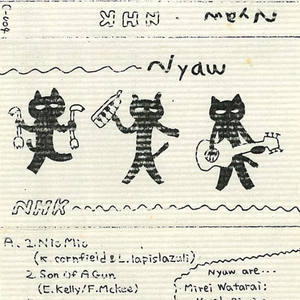 NHK
Nyaw
Nyaw
NHK
A. 1. Nio Mio
(K. cornfield & L. lapislazuli)
2. Son Of A Gun
(E. Kelly/F. McKee)
Nyaw are...
Mirei Watarai: